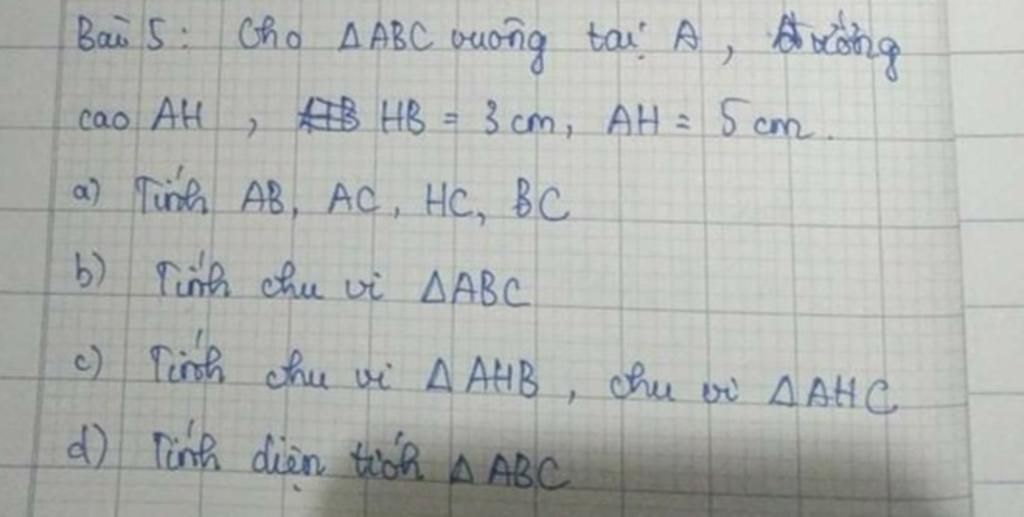 Bài 5: Cho ΔABC vuông tại A, đường
cao AH, HB = 3 cm, AH = 5 cm.
a) Tính AB, AC, HC, BC
b) Tính chu vi ΔABC
c) Tính chu vi ΔAHB, chu vi ΔAHC
d) Tính diện tích ΔABC